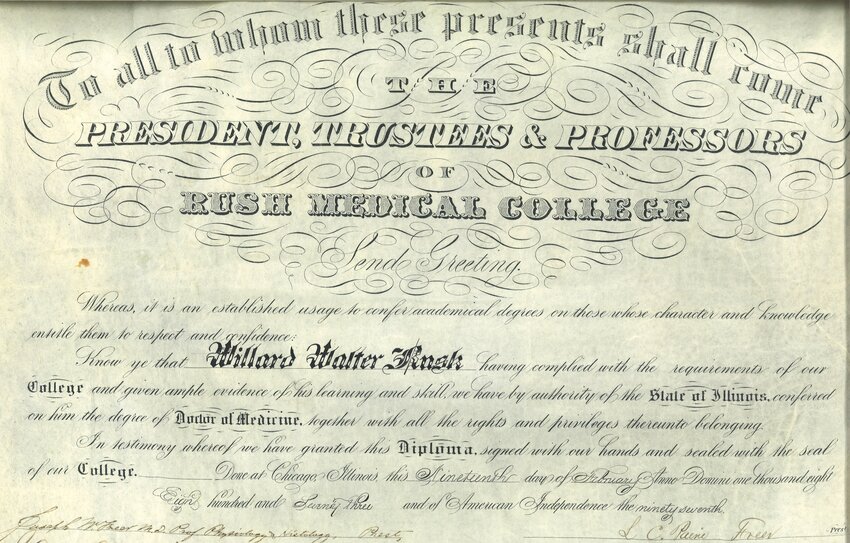 To all to whom these presents shall come
THE
PRESIDENT, TRUSTEES & PROFESSORS
OF
RUSH MEDICAL COLLEGE
Send Greeting.
Whereas, it is an established usage to confer academical degrees on those whose character and knowledge
entitle them to respect and confidence:
Know ye that Willard Walter Rask having complied with the requirements of our
College and given ample evidence of his learning and skill, we have by authority of the State of Illinois, conferred
on him the degree of Doctor of Medicine, together with all the rights and privileges thereunto belonging.
In testimony whereof we have granted this Diploma, signed with our hands and sealed with the seal
of our College. Done at Chicago, Illinois, this Nineteenth day of February Anno Domini one thousand eight
hundred and and of American Independence the ninety seventh.
Joseph W. Freer M.D. Prof Physiology & Histology, Prest, L. C. Paine Freer Prest